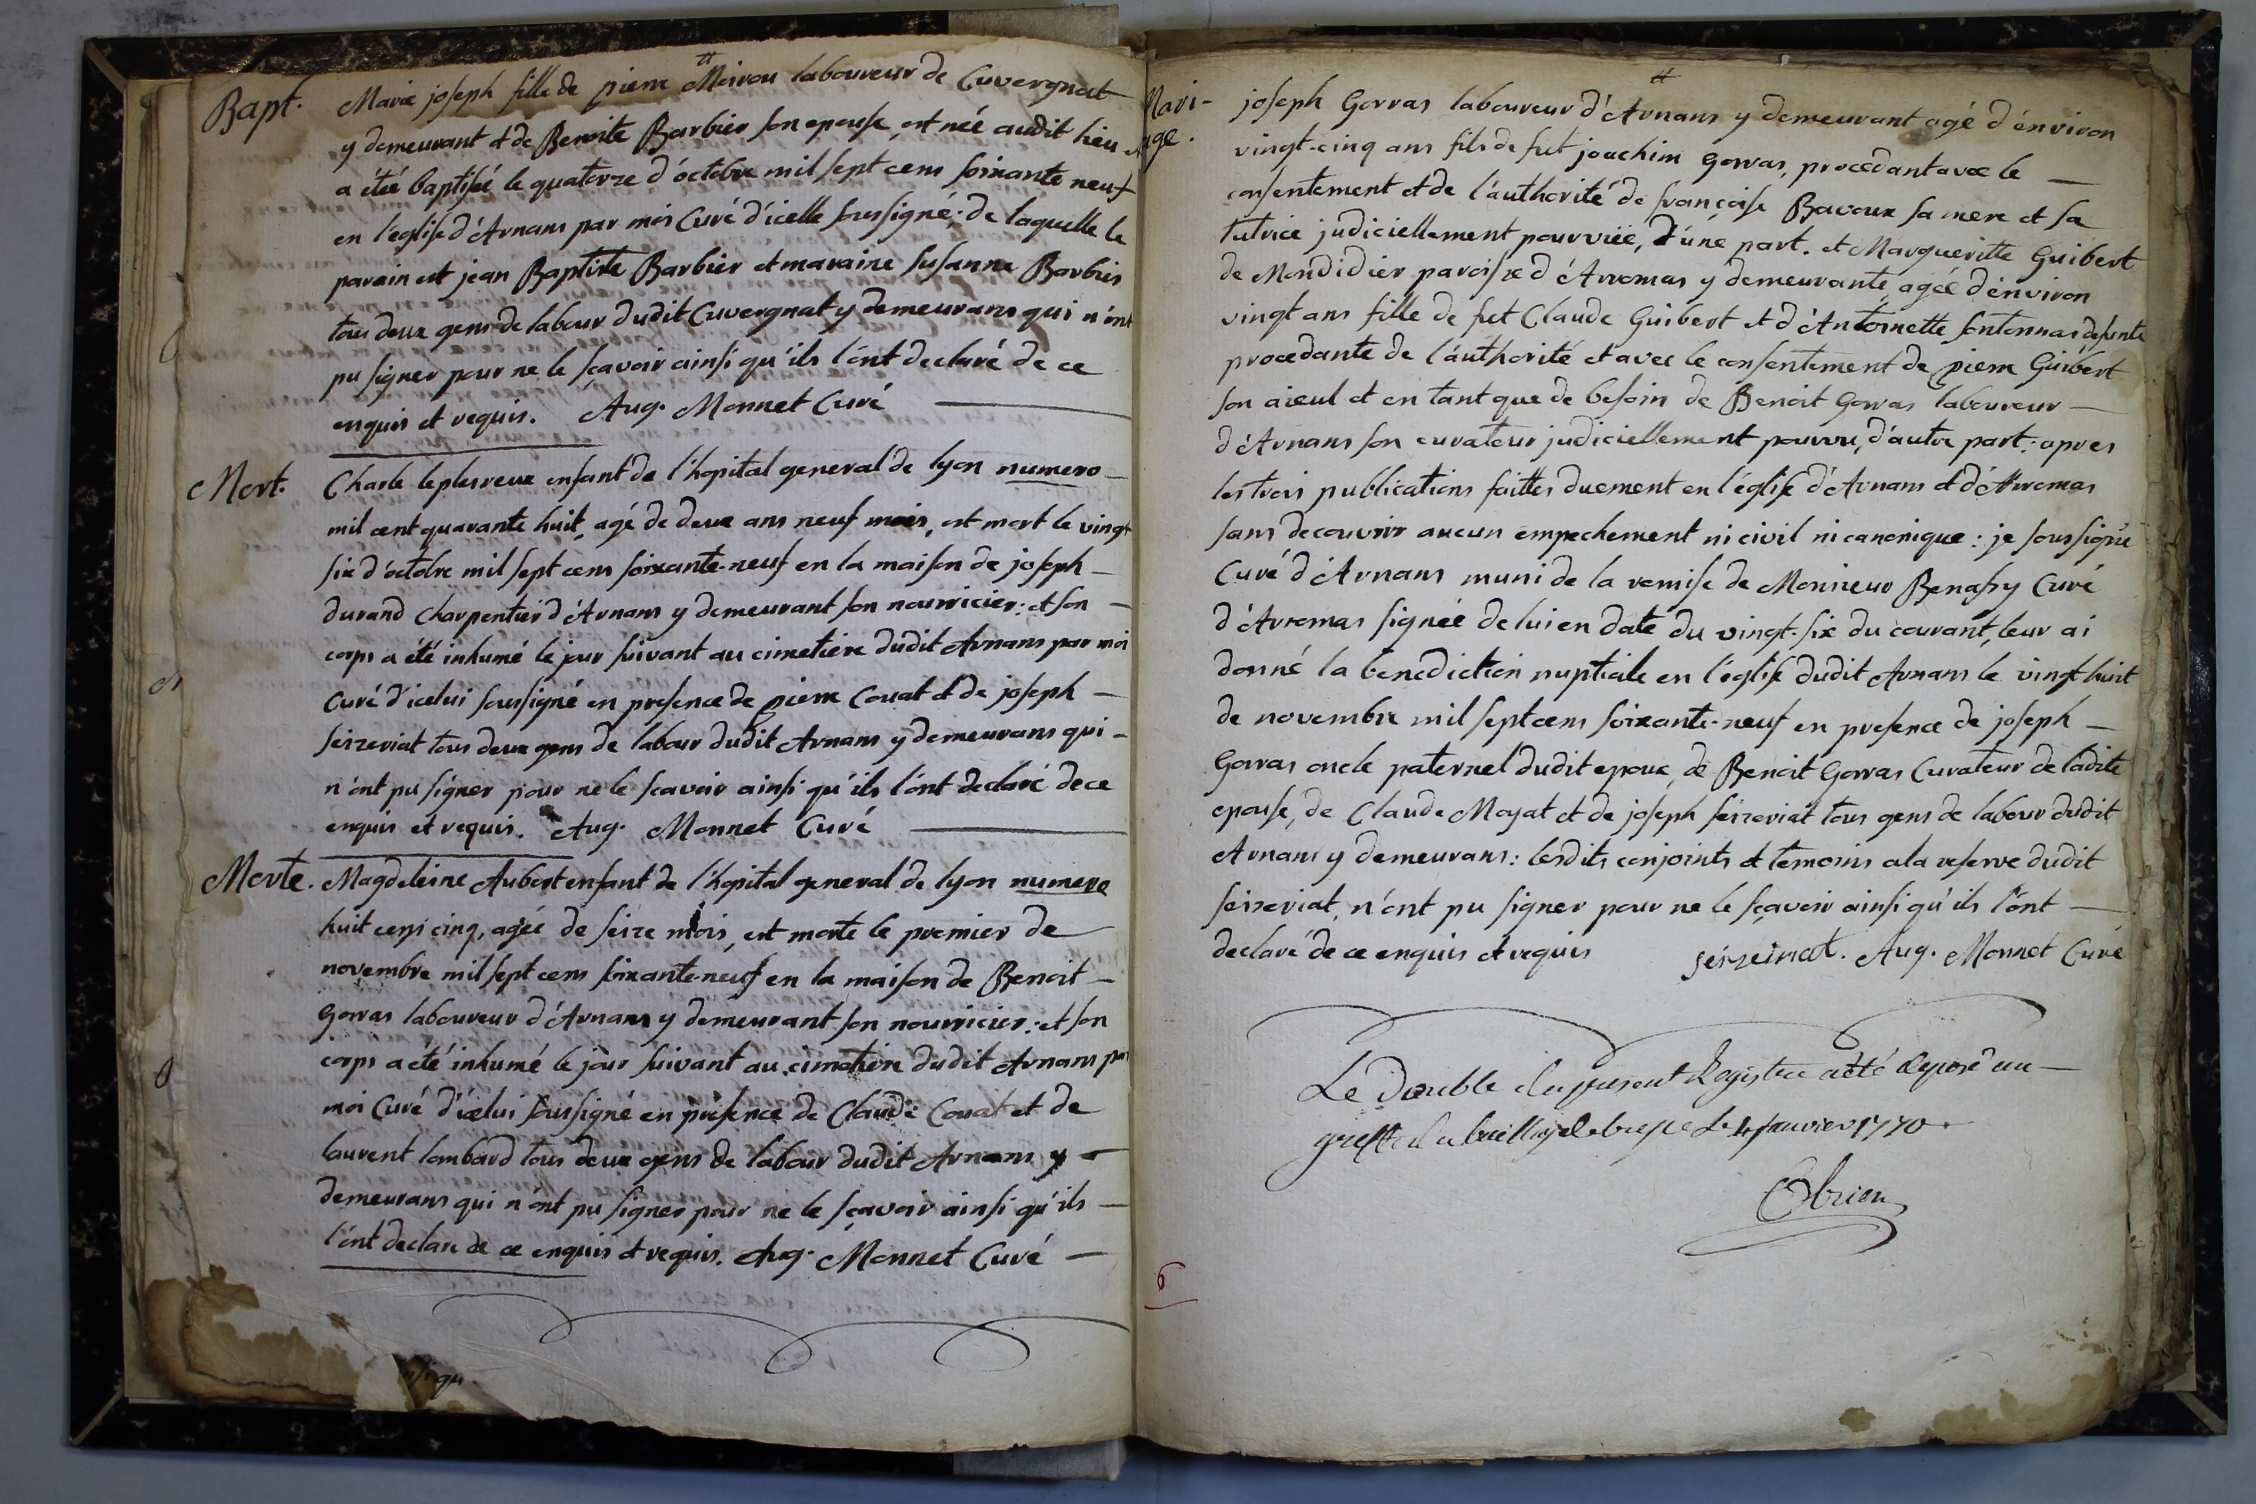 Bapt. Marie joseph fille de pierre Moirou laboureur de Cuvergnat
y demeurant et de Benoite Barbier son epouse, est née audit lieu et
a étée baptisée le quatorze d'octobre mil sept cens soixante neuf
en l'eglise d'Arnans par moi Curé d'icelle soussigné; de laquelle le
parain est jean Baptiste Barbier et maraine Susanne Barbier
tou deux gens de labour dudit Cuvergnat y demeurans qui n'ont
pu signer pour ne le sçavoir ainsi qu'ils l'ont declaré de ce
enquis et requis. Aug. Monnet Curé
Mort. Charle leplesreux enfant de l'hopital general de lyon numero
mil cent quarante huit, agé de deux ans neuf mois, est mort le vingt
six d'octobre mil sept cens soixante-neuf en la maison de joseph
durand Charpentier d'Arnans y demeurant son nourricier: et son
corps a été inhumé le jour suivant au cimetiere dudit Arnans par moi
Curé d'icelui soussigné en presence de pierre Couat et de joseph
seizeriat tous deux gens de labour dudit Arnans y demeurans qui
n'ont pu signer pour ne le sçavoir ainsi qu'ils l'ont declaré de ce
enquis et requis. Aug. Monnet Curé
Morte. Magdeleine Aubert enfant de l'hopital general de lyon numero
huit cens cinq, agée de seize mois, est morte le premier de
novembre mil sept cens soixante-neuf en la maison de Benoit
Gorras laboureur d'Arnans y demeurant son nourricier: et son
corps a été inhumé le jour suivant au cimetiere dudit Arnans par
moi Curé d'icelui soussigné en presence de Claude Couat et de
laurent lombard tous deux gens de labour dudit Arnans y
demeurans qui n'ont pu signer pour ne le sçavoir ainsi qu'ils
l'ont declaré de ce enquis et requis. Aug. Monnet Curé
Mari- joseph Gorras laboureur d'Arnans y demeurant agé d'environ
age. vingt-cinq ans fils de fut joachim Gorras, procedant avec le
consentement et de l'authorité de françoise Bavoux sa mere et sa
tutrice judiciellement pourvüe, d'une part. et Marqueritte Guibert
de Mondidier paroisse d'Arromas y demeurante, agée d'environ
vingt ans fille de fut Claude Guibert et d'Antoinette fontannas defunte
procedante de l'authorité et avec le consentement de pierre Guibert
son aieul et en tant que de besoin de Benoit Gorras laboureur
d'Arnans son curateur judiciellement pourvu, d'autre part: apres
les trois publications faittes duement en l'église d'Arnans et d'Arromas
sans decouvrir aucun empechement ni civil ni canonique: je soussigné
Curé d'Arnans muni de la remise de Monsieur Benassy Curé
d'Arromas signée de lui en date du vingt-six du courant, leur ai
donné la benediction nuptiale en l'église dudit Arnans le vingt huit
de novembre mil sept cens soixante-neuf en presence de joseph
Gorras oncle paternel dudit epoux, de Benoit Gorras Curateur de ladite
epouse, de Claude Moyat et de joseph seizeriat tous gens de labour dudit
Arnans y demeurans: lesdits conjoints et temoins a la reserve dudit
seizeriat, n'ont pu signer pour ne le sçavoir ainsi qu'ils l'ont
declaré de ce enquis et requis seizeiriat. Aug. Monnet Curé
Le Double du present Registre a été deposé au
greffe du bailliage de bresse Le 4 janvier 1770
Obrien
6